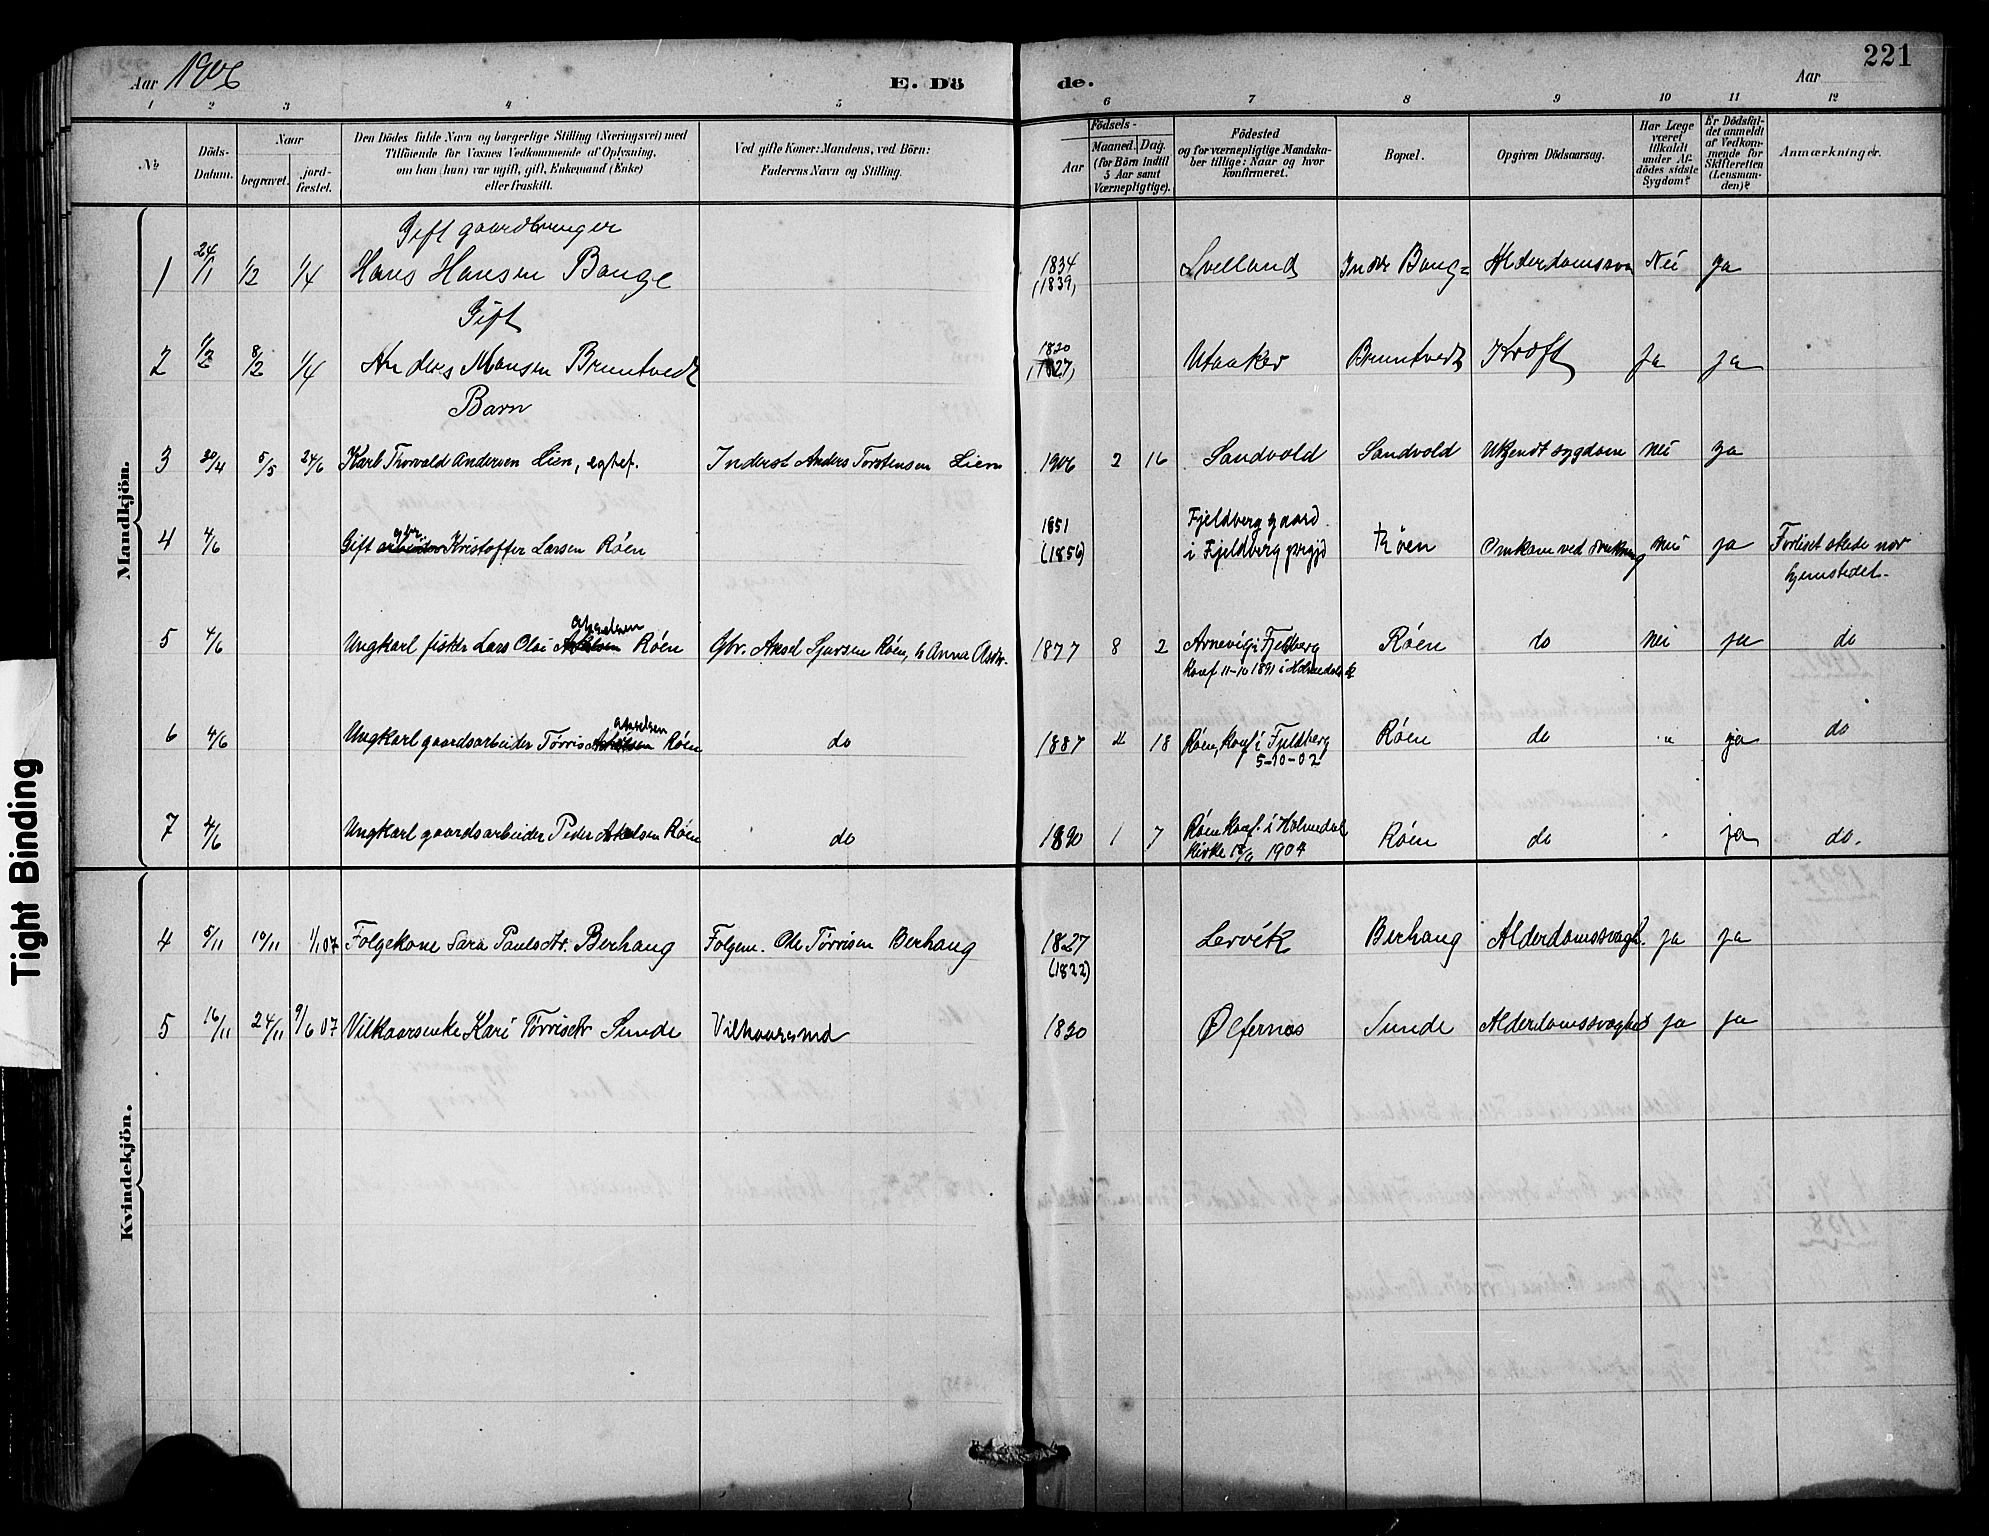 221
Aar 1906
E. Dö
de.
Aar
1 2 3 4 5 6 7 8 9 10 11 12
No
Döds-Datum.
Naar
begravet.
jord-fæstet.
Den Dödes fulde Navn og borgerlige Stilling (Næringsvei) med
Tilföiende for Voxnes Vedkommende af Oplysning,
om han (hun) var ugift, gift, Enkemand (Enke)
eller fraskilt.
Ved gifte Koner: Mandens, ved Börn:
Faderens Navn og Stilling.
Födsels-
Aar
Maaned. Dag.
(for Börn indtil
5 Aar samt
Værnepligtige).
Födested
og for værnepligtige Mandska-
ber tillige: Naar og hvor
konfirmeret.
Bopæl.
Opgiven Dödsaarsag.
Har Læge
været
tilkaldt
under Af-
dödes sidste
Sygdom?
Er Dödsfal-
det anmeldt
af Vedkom-
mende for
Skifteretten
(Lensman-
den)?
Anmærkninger.
Mandkjön.
Gift gaardbruger
1 24/1 1/2 1/4 Hans Hansen Bauge 1834 Indre Alderdomssva Nei ja
(1839)
Gift
2 1/2 8/2 1/4 Anders Monsen Bruntvedt 1820 Utaaker Bruntvedt Kræft ja ja
(1827)
Barn
3 30/4 5/5 24/6 Karl Thorvald Andersen Lien, egtef. Inderst Anders Torstensen Lien 1906 2 16 Sandvold Sandvold Ukjendt sygdom nei ja
4 4/6 Gift gbr. Kristoffer Larsen Røen 1851 Fjeldberg gaard
(1856) i Fjeldberg prgjd Røen Omkom ved nei ja Forliset skede nær
hjemstedet.
5 4/6 Ungkarl fisker Lars Olai Akselsen Røen Gbr. Aksel Sjursen Røen, h Anna 1877 8 2 Arnevig i Fjelberg Røen do nei ja do
Konf 11-10 1891 i Holmedals k
6 4/6 Ungkarl gaardsarbeider Tørris Akselsen Røen do 1887 18 Røen, konf i Fjeldberg Røen do " ja do
5-10-02
7 4/6 Ungkarl gaardsarbeider Peder Akselsen Røen do 1890 1 7 Røen konf. i Holmedal Røen do " ja do.
kirke 1904
Kvindekjön.
4 5/11 10/11 1/1 07 Folgekone Sara Paulsdtr. Berhaug Folgem. Ole Tørrisen Berhaug 1827 Lervik Berhaug Alderdomssvagh. ja ja
(1822)
5 16/11 24/11 9/6 07 Vilkaarsenke Kari Tørrisdtr Sunde Vilkaarsmd 1830 Ølfernes Sunde Alderdomssvaghed ja ja
Tight Binding